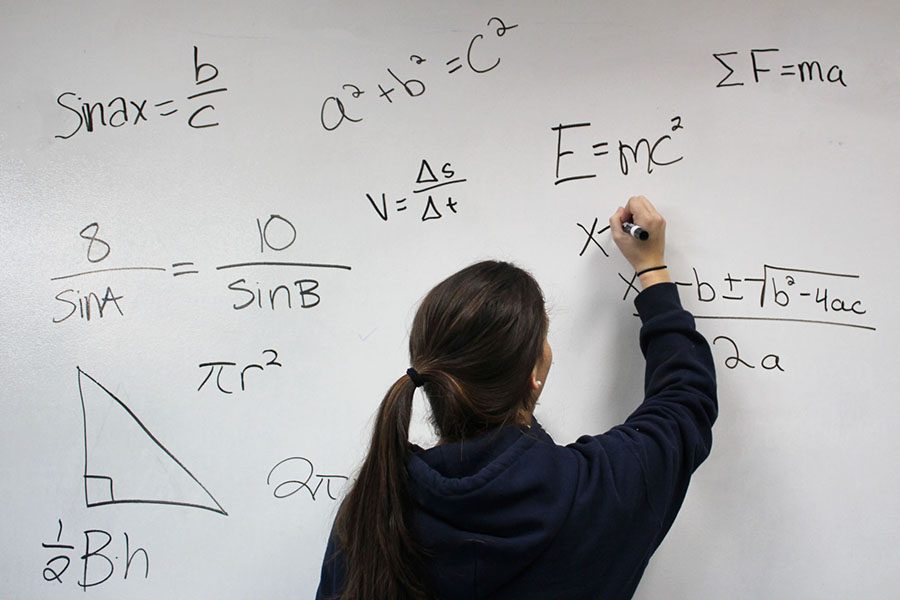 Sinax = b/c
a² + b² = c²
ΣF = ma
E = mc²
V = Δs/Δt
8/SinA = 10/SinB
X
X -b ± √b² - 4ac
2a
πr²
2π
1/2 B·h